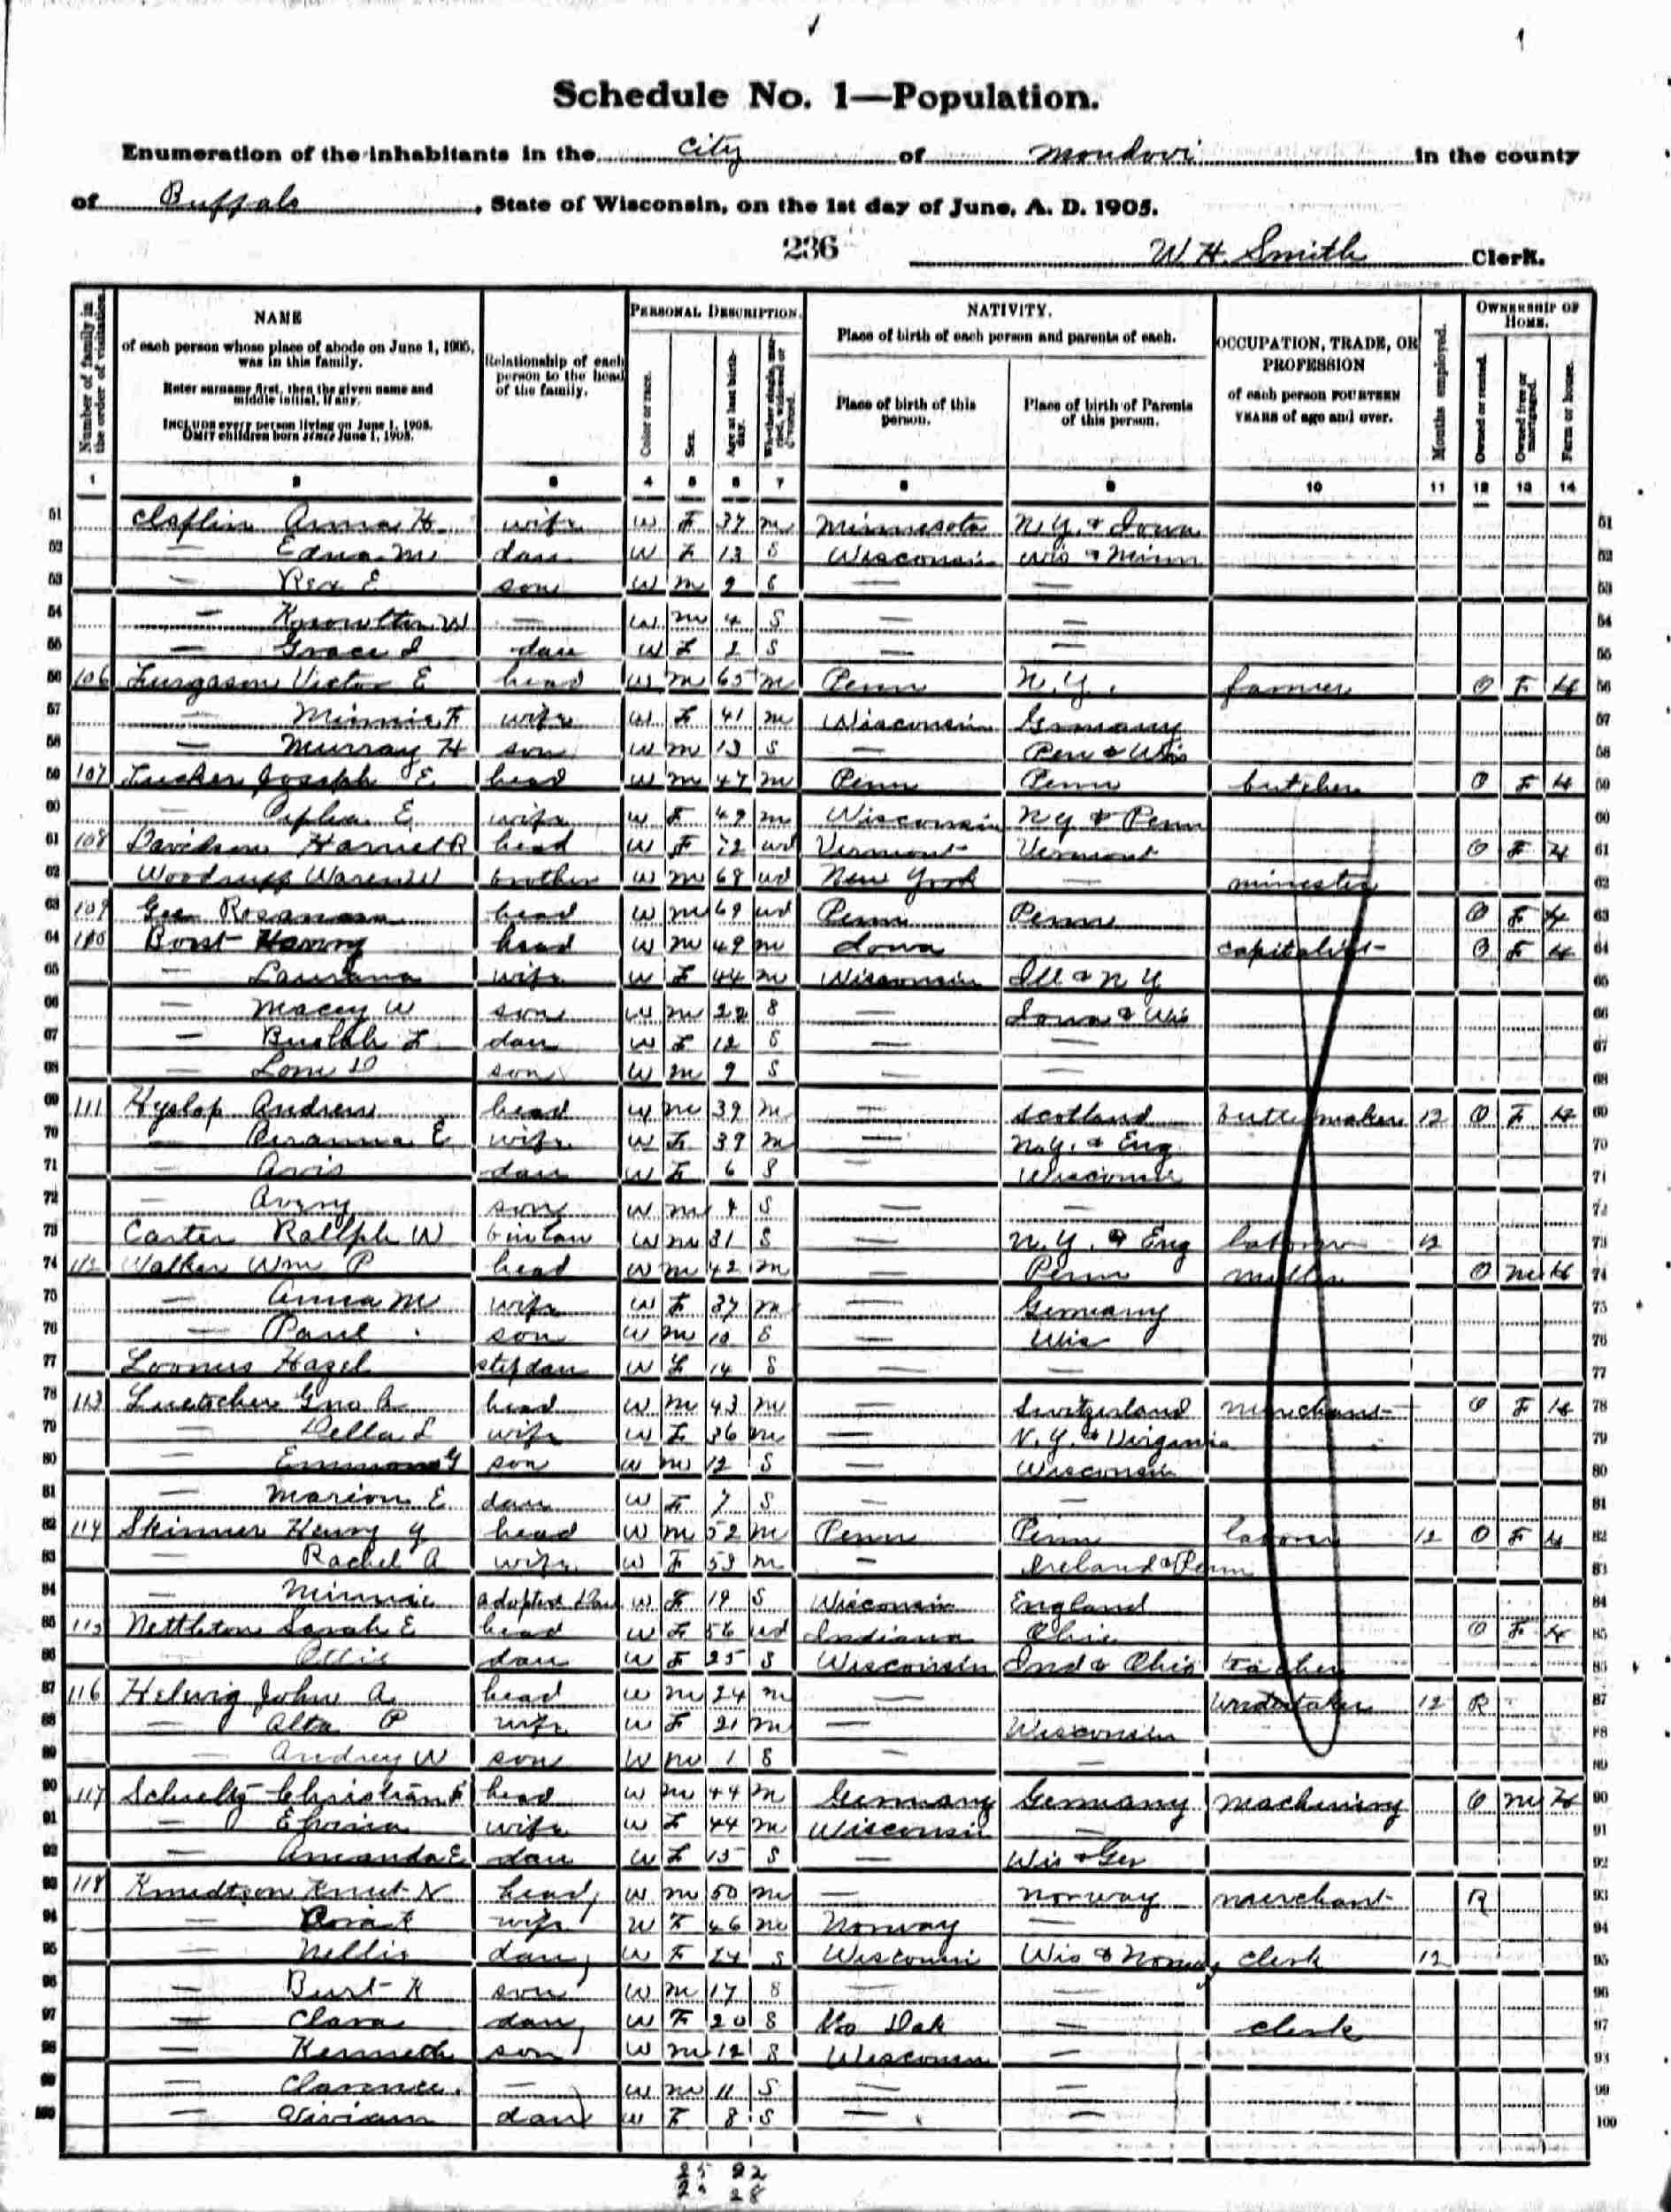 1
Schedule No. 1—Population.
Enumeration of the inhabitants in the City of Mondovi in the county
of Buffalo, State of Wisconsin, on the 1st day of June, A. D. 1905.
236 W. H. Smith Clerk.
Number of family in the order of visitation.
NAME
of each person whose place of abode on June 1, 1905, was in this family.
Enter surname first, then the given name and middle initial, if any.
INCLUDE every person living on June 1, 1905.
OMIT children born since June 1, 1905.
Relationship of each person to the head of the family.
PERSONAL DESCRIPTION.
Color or race.
Sex.
Age at last birthday.
Whether single, married, widowed or divorced.
NATIVITY.
Place of birth of each person and parents of each.
Place of birth of this person.
Place of birth of Parents of this person.
OCCUPATION, TRADE, OR PROFESSION
of each person FOURTEEN YEARS of age and over.
Months employed.
OWNERSHIP OF HOME.
Owned or rented.
Owned free or mortgaged.
Farm or house.
1 2 3 4 5 6 7 8 9 10 11 12 13 14
51 Claflin Anna H. wife W F 37 m Minnesota N.Y. & Iowa 51
52 — Edna M dau W F 13 S Wisconsin Wis & Minn 52
53 — Rex E son W m 9 S — — 53
54 — Knowlton W — W m 4 S — — 54
55 — Grace I dau W F 2 S — — 55
56 106 Furgason Victor E head W m 65 m Penn N.Y. farmer O F H 56
57 — Minnie F wife W F 41 m Wisconsin Germany 57
58 — Murray H son W m 13 S — Pen & Wis 58
59 107 Tucker Joseph E head W m 47 m Penn Penn butcher O F H 59
60 — E wife W F 49 m Wisconsin N Y & Penn 60
61 108 Davidson Harriet R head W F 72 wd Vermont Vermont O F H 61
62 Woodruff Waren W brother W m 68 wd New York — minister 62
63 109 Gee Rosanna head W m 69 wd Penn Penn O F H 63
64 Borst Henry head W m 49 m Iowa capitalist O F H 64
65 — Laurana wife W F 44 m Wisconsin Ill & N Y 65
66 — Macey W son W m 22 S — Iowa & Wis 66
67 — F dau W F 12 S — — 67
68 — son W m 9 S — — 68
69 111 Hyslop Andrew head W m 39 m — Scotland butter maker 12 O F H 69
70 — E wife W F 39 m — N.Y. & Eng 70
71 — Avis dau W F 6 S — Wisconsin 71
72 — Avery son W m 4 S — — 72
73 Carter Rallph W W m 31 S — N.Y. & Eng laborer 12 73
74 112 Walker Wm P head W m 42 m — Penn miller O m H 74
75 — Anna M wife W F 37 m — Germany 75
76 — Paul son W m 10 S — Wis 76
77 Loomis Hazel step dau W F 14 S — — 77
78 113 Luetscher Gno A head W m 43 m — Switzerland merchant O F H 78
79 — Della L wife W F 36 m — N.Y. & Virginia 79
80 — Emmons G son W m 12 S — Wisconsin 80
81 — Marion E dau W F 7 S — — 81
82 114 Skinner Henry Y head W m 52 m Penn Penn laborer 12 O F H 82
83 — Rachel A wife W F 53 m — Ireland & Penn 83
84 — Minnie adopted dau W F 19 S Wisconsin England 84
85 115 Nettleton Sarah E head W F 56 wd Indiana Ohio O F H 85
86 — Ollie dau W F 25 S Wisconsin Ind & Ohio teacher 86
87 116 Helwig John A head W m 24 m — undertaker 12 R 87
88 — Alta P wife W F 21 m — Wisconsin 88
89 — Audrey W son W m 1 S — — 89
90 117 Schultz Christian F head W m 44 m Germany Germany machinery O m H 90
91 — wife W F 44 m Wisconsin — 91
92 — Amanda E dau W F 15 S — Wis & Ger 92
93 118 Knudtson Knut N head W m 50 m — Norway merchant R 93
94 — wife W F 46 m Norway — 94
95 — Nellie dau W F 24 S Wisconsin Wis & Norway clerk 12 95
96 — Burt K son W m 17 S — — 96
97 — Clara dau W F 20 S No Dak — clerk 97
98 — Kenneth son W m 12 S Wisconsin — 98
99 — Clarence — W m 11 S — — 99
100 — Vivian dau W F 8 S — — 100
25 22
28